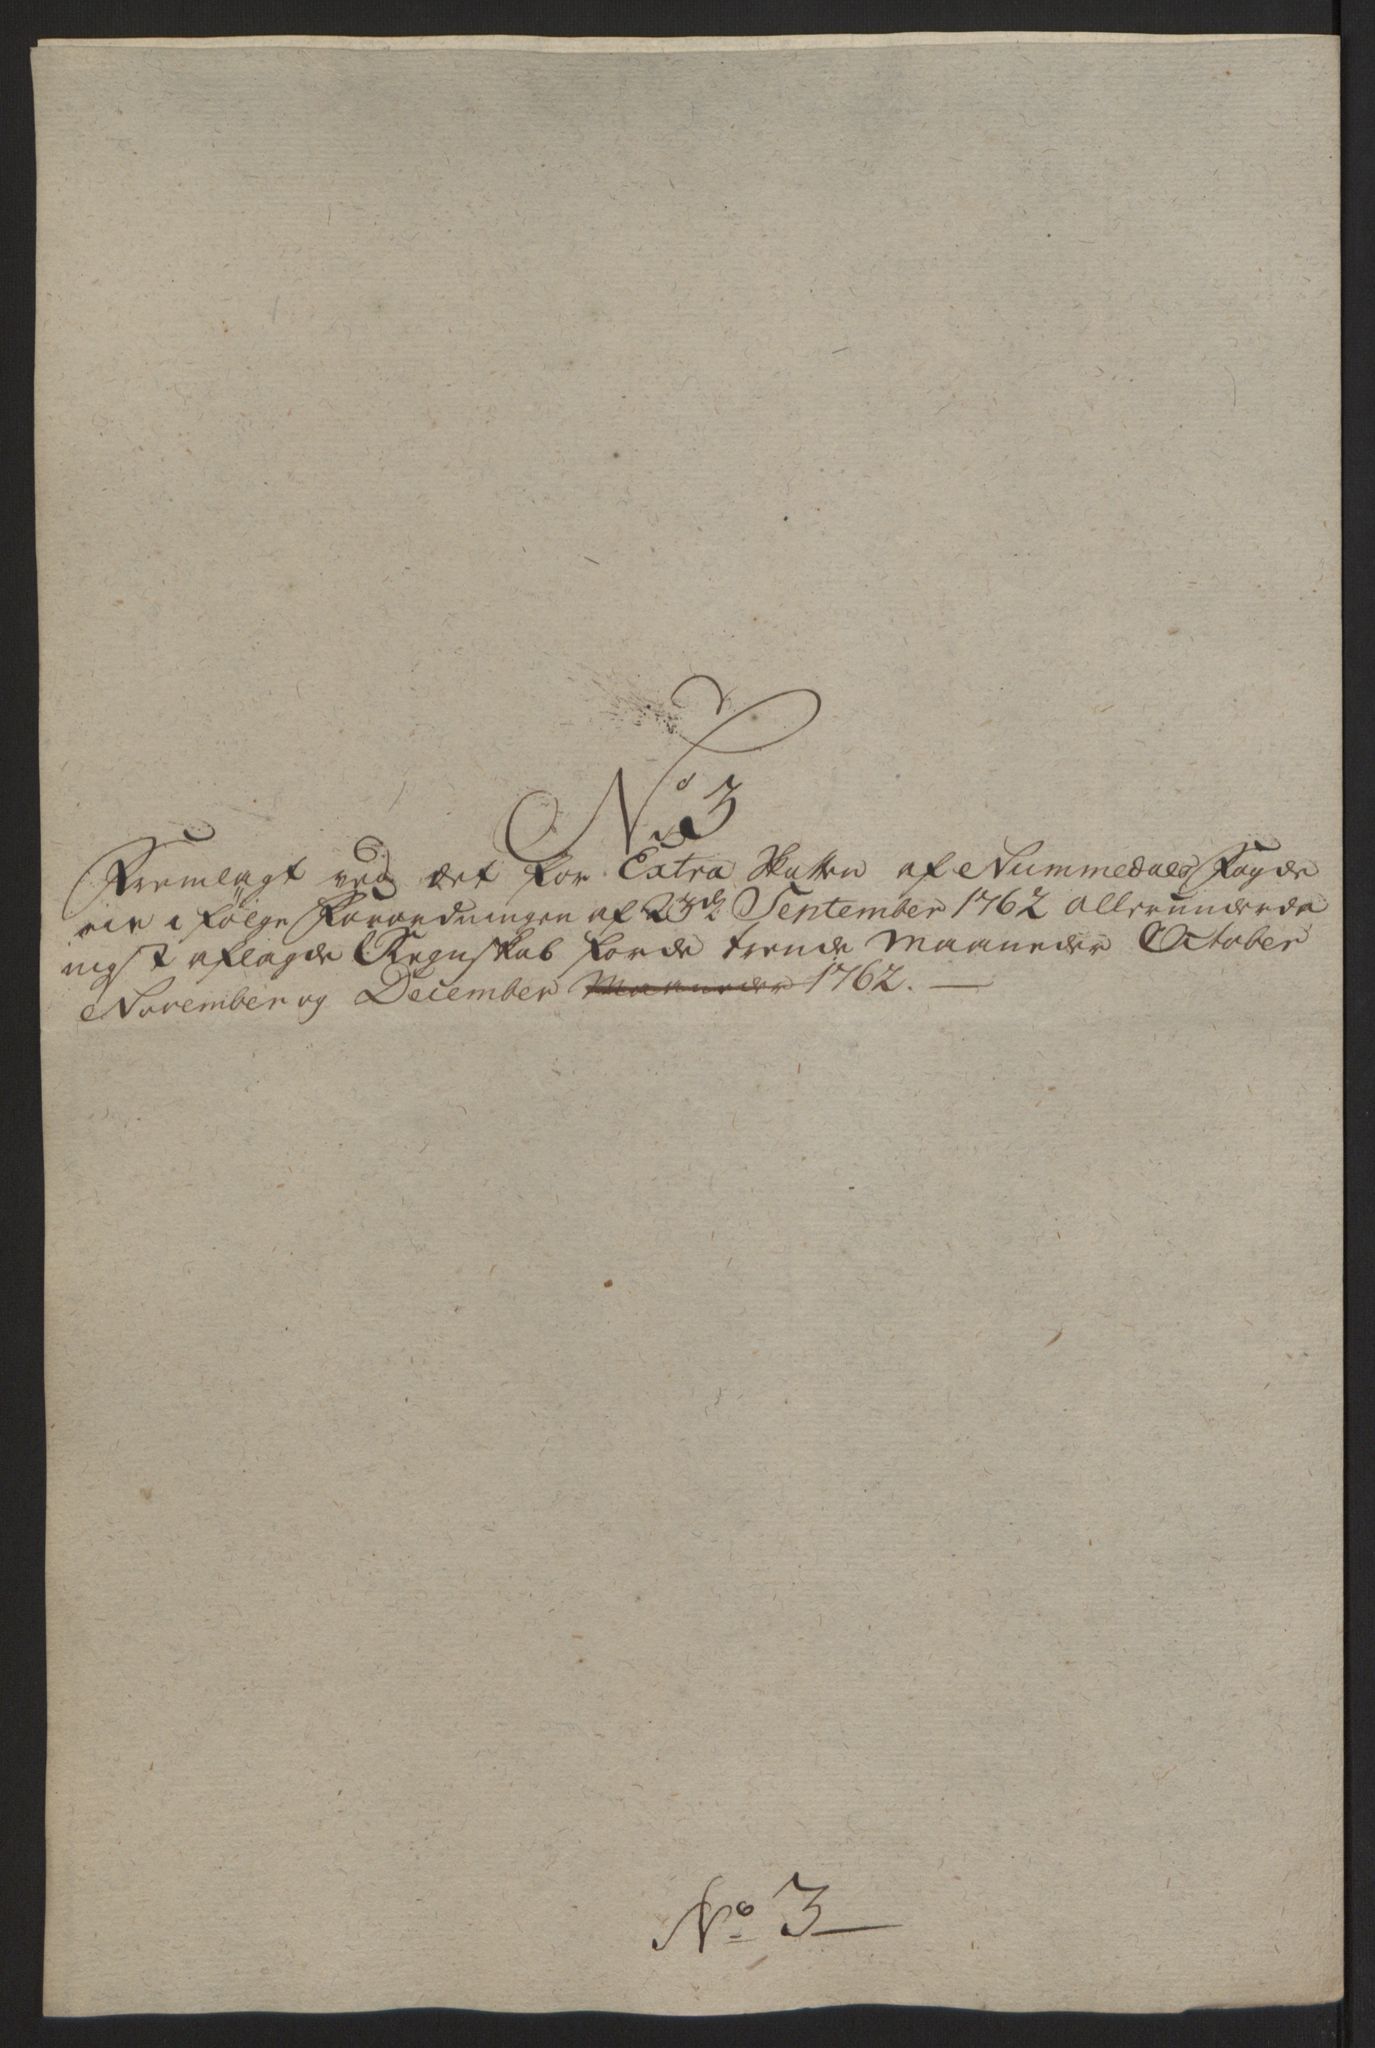 No 3
Fremlagt ved det for Extra Skatten af Nummedals Fogde
rie i følge Forordningen af 23de September 1762 allerunderda
nigst aflagde Regnskab for de trende Maaneder October
November og December Maaneder 1762. —
No 3